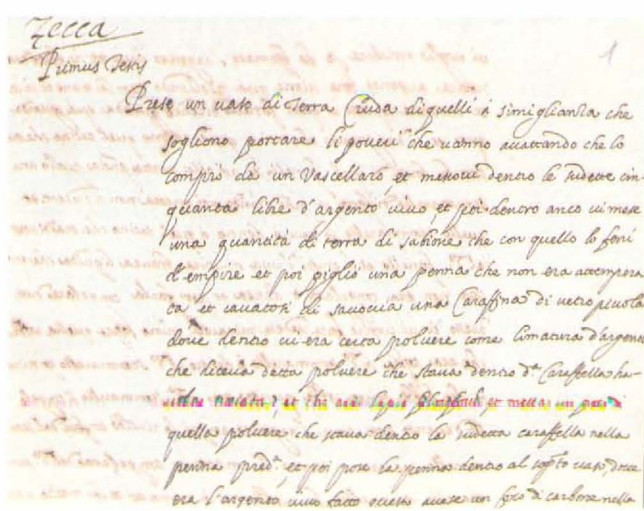 Zecca
1
Primus Testis
Prese un uaso di Terra Cruda di quelli á simiglianza che
sogliono portare li poueri che uanno accattando che lo
comprò da un Vascellaro, et messoui dentro le sudette cin-
quanta libre d'argento uiuo, et poi dentro anco ui mese
una quantità di terra di sabione che con quello lo finì
d'empire et poi pigliò una penna che non era attempera
ta et cauatosi di saccoccia una Caraffina di uetro piccola
doue dentro ui era certa poluere come limatura d'argento
che diceua detta poluere che staua dentro d.ª Caraffella ha-
et
quella poluere che staua dentro la sudetta caraffella nella
penna pred.ª, et poi pose la penna dentro al sop.to uaso, doue
era l'argento uiuo fatto questo un di carbone nella